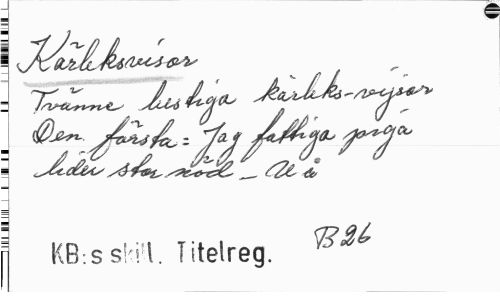 Kärleksvisor
Tvänne lustiga kärleks-vijsor
Den första: Jag fattiga piga
lider stor nöd - U å
B 26
KB:s skill. Titelreg.